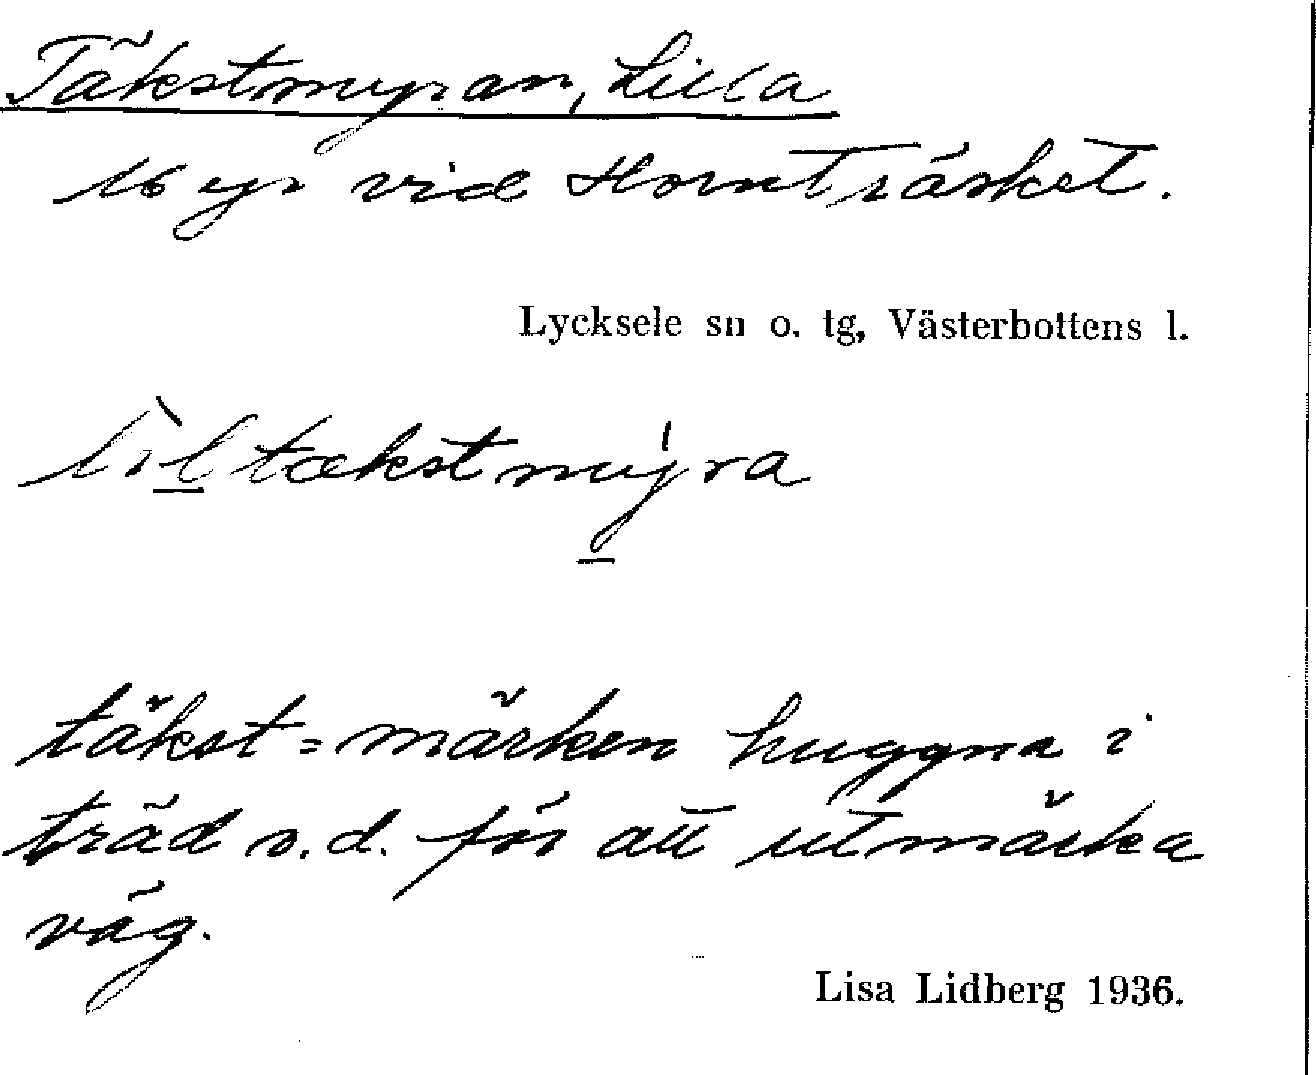 Täkstmyran, Lilla
Myr vid Hornträsket.
Lycksele sn o. tg, Västerbottens l.
lìltækstmýra
täkst = märken huggna i
träd o.d. för att utmärka
väg.
Lisa Lidberg 1936.